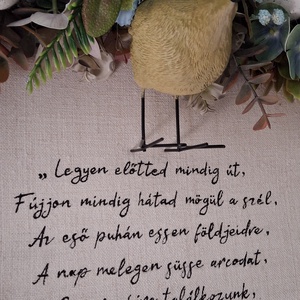 „ Legyen előtted mindig út,
Fújjon mindig hátad mögül a szél,
Az eső puhán essen földjeidre,
A nap melegen süsse arcodat,
találkozunk,